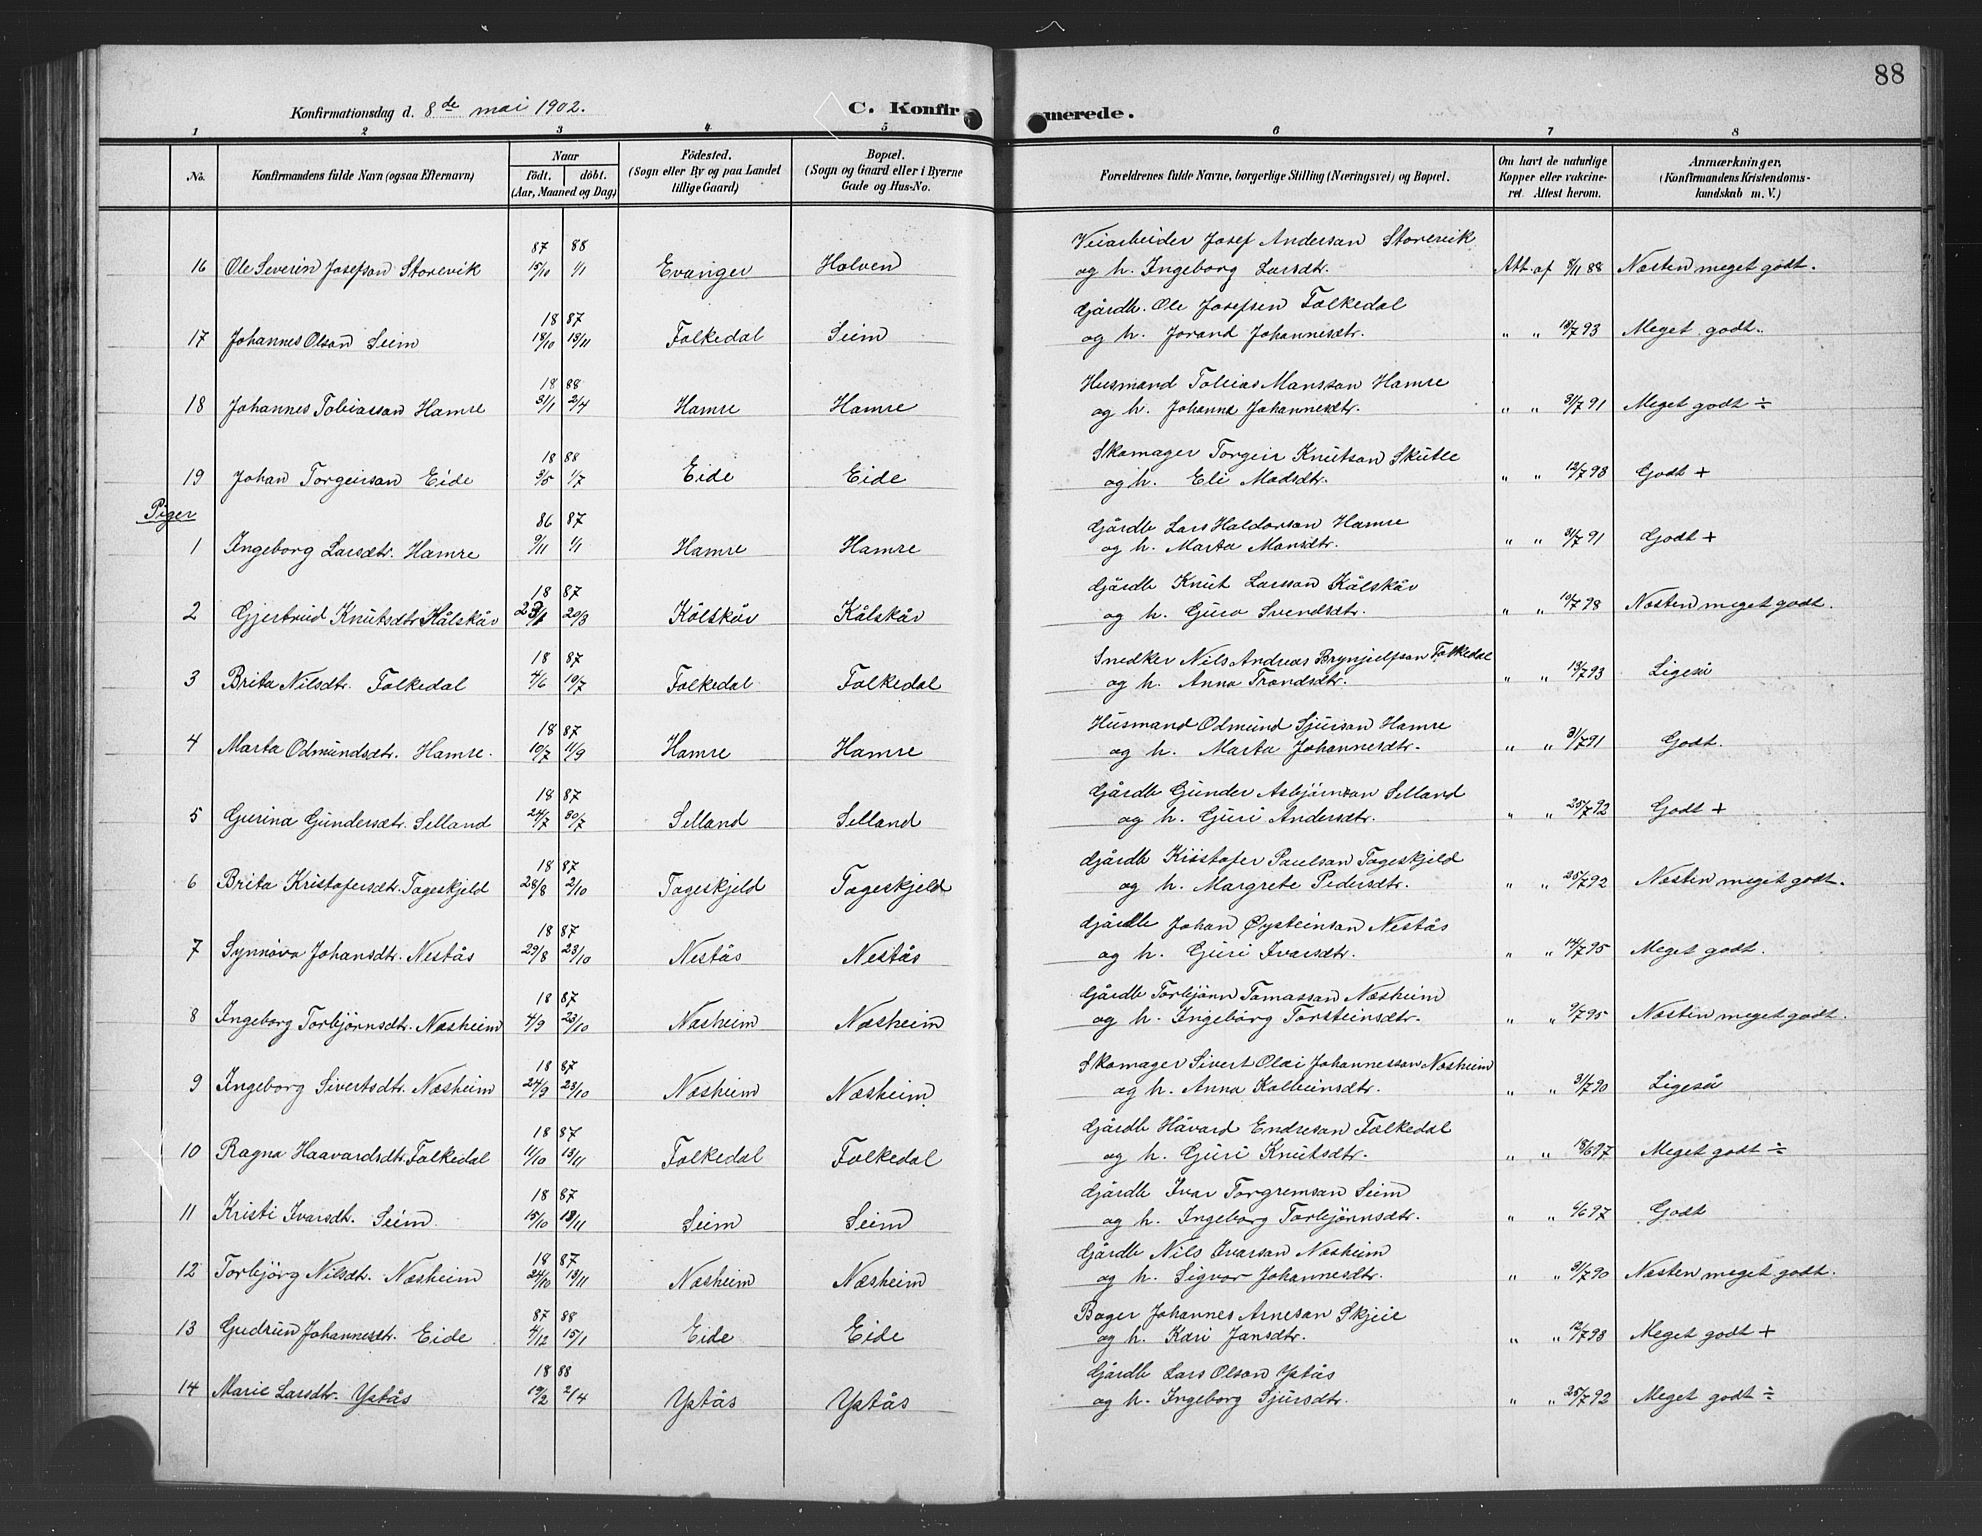 88
Konfirmationsdag d. 8de mai 1902. C. Konfirmerede.
1 2 3 4 5 6 7 8
No. Konfirmandens fulde Navn (ogsaa Efternavn) Naar födt. döbt. (Aar, Maaned og Dag) Födested. (Sogn eller By og paa Landet tillige Gaard) Bopæl. (Sogn og Gaard eller i Byerne Gade og Hus-No. Forældrenes fulde Navne, borgerlige Stilling (Næringsvei) og Bopæl. Om havt de naturlige Kopper eller vakcineret. Attest herom. Anmærkninger. (Konfirmandens Kristendomskundskab m. V.)
87 88 Veiarbeider Josef Anderson Storevik
16 Ole Severin Josefson Storevik 15/10 1/1 Evanger Halven og h. Ingeborg Larsdtr. Att. af 8/11 88 Næsten meget godt.
18 87 Gårdb. Ole Josefsen Folkedal
17 Johannes Olson Seim 18/10 13/11 Folkedal Seim og h. Jorand Johannesdtr. " " 13/7 93 Meget godt.
18 88 Husmand Tobias Mansson Hamre
18 Johannes Tobiasson Hamre 31/1 2/4 Hamre Hamre og h. Johanna Johannesdtr. " " 31/7 91 Meget godt ÷
18 88 Skomager Torgeir Knutson Skutle
19 Johan Torgeirson Eide 3/5 1/7 Eide Eide og h. Eli Madsdtr. " " 12/7 98 Godt +
Piger
86 87 Gårdb Lars Haldorson Hamre
1 Ingeborg Larsdtr. Hamre 9/11 1/1 Hamre Hamre og h. Marta Mansdtr. " " 31/7 91 Godt +
18 87 Gårdb Knut Larsson Kålskåv
2 Gjertrud Knutsdtr Kålskåv 20/3 Kålskåv Kålskåv og h. Guro Svendsdtr. " " 19/7 98 Næsten meget godt.
18 87 Snedker Nils Andreas Brynjelfson Folkedal
3 Brita Nilsdtr. Folkedal 4/6 10/7 Folkedal Folkedal og h. Anna Trondsdtr. " " 13/7 93 Ligeså
18 87 Husmand Odmund Sjurson Hamre
4 Marta Odmundsdtr. Hamre. 10/7 11/9 Hamre Hamre og h. Marta Johannesdtr. " " 31/7 91 Godt.
18 87 Gårdb Gunder Asbjørnson Selland
5 Gurina Gundersdtr. Selland 24/7 30/7 Selland Selland og h. Guri Andersdtr. " " 25/7 92 Godt +
18 87 Gårdb Kristofer Paulson Tageskjeld
6 Brita Kristofersdtr. Tageskjeld 28/8 2/10 Tageskjeld Tageskjeld og h. Margrete Pedersdtr. " " 25/7 92 Næsten meget godt.
18 87 Gårdb Johan Øysteinson Nestås
7 Synnøva Johansdtr. Nestås 29/8 23/10 Nestås Nestås og h. Guri Ivarsdtr. " " 14/7 95 Meget godt.
18 87 Gårdb Torbjørn Tomasson Næsheim
8 Ingeborg Torbjørnsdtr. Næsheim 4/9 23/10 Næsheim Næsheim og h. Ingeborg Torsteinsdtr. " " 9/7 95 Næsten meget godt.
18 87 Skomager Sivert Olai Johannesson Næsheim
9 Ingeborg Sivertsdtr. Næsheim 24/9 23/10 Næsheim Næsheim. og h. Anna Kolbeinsdtr. " " 31/7 90 Ligeså
18 87 Gårdb Håvard Endreson Folkedal
10 Ragna Haavardsdtr. Folkedal 11/10 13/11 Folkedal Folkedal og h. Guri Knutsdtr. " " 18/6 97 Meget godt ÷
18 87 Gårdb Ivar Torgremson Seim
11 Kristi Ivarsdt. Seim 15/10 13/11 Seim Seim og h. Ingeborg Torbjørnsdtr. " " 6/6 97 Godt
18 87 Gårdb Nils Ivarson Næsheim
12 Torbjørg Nilsdtr. Næsheim 24/10 13/11 Næsheim Næsheim og h. Signor Johannesdtr. " " 31/7 90 Næsten meget godt.
87 88 Bager Johannes Arneson Skjeie
13 Gudrun Johannesdtr. Eide 4/12 15/1 Eide Eide og h. Kari Jansdtr. " " 12/7 98 Meget godt +
18 88 Gårdb Lars Olson Ystås
14 Marie Larsdtr. Ystås 19/2 2/4 Ystås Ystås og h. Ingeborg Sjursdtr. " " 25/7 92 Meget godt ÷